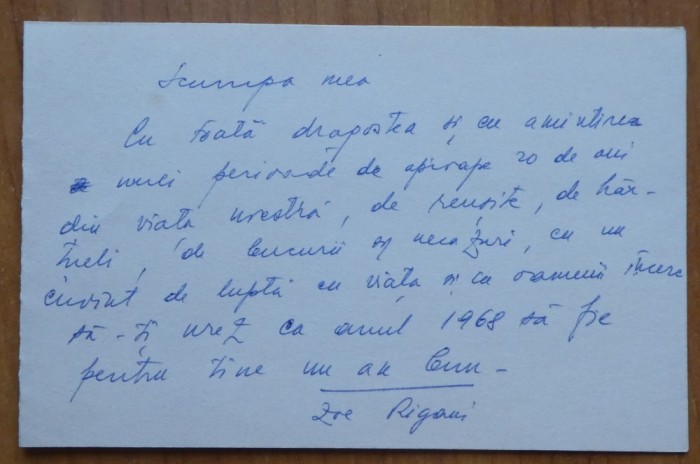 Scumpa mea
Cu toată dragostea și cu amintirea
unei perioade de aproape 20 de ani
din viața noastră, de reușite, de hăr-
țueli, de bucurii și necazuri, cu un
cuvînt de luptă cu viața și cu oamenii încerc
să-ți urez ca anul 1968 să fie
pentru tine un an bun -
Zoe Rigani